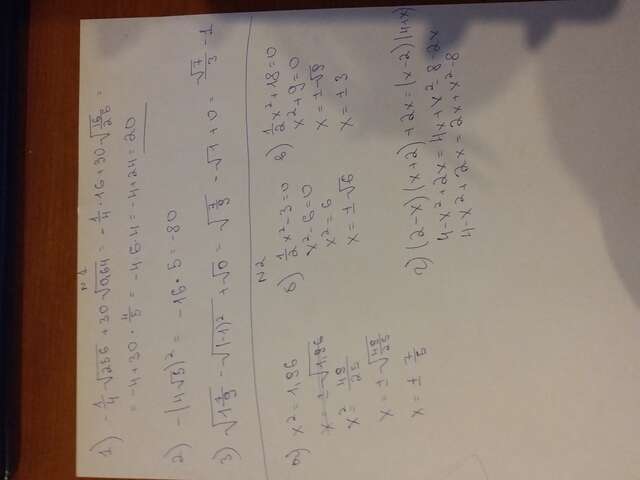 N 1
1) -1/4 √256 + 30 √0,64 = -1/4 · 16 + 30 √16/25 =
= -4 + 30 · 4/5 = -4 6·4 = -4+24 = 20
2) -(4√5)² = -16 · 5 = -80
3) √1 7/9 - √(-1)² + √0 = √7/9 - √1 + 0 = √7/3 - 1
N 2
а) x² = 1,96
x = ±√1,96
x² = 49/25
x = ±√49/25
x = ± 7/5
б) 1/2 x² - 3 = 0
x² - 6 = 0
x² = 6
x = ± √6
в) 1/2 x² + 18 = 0
x² + 9 = 0
x = ±√9
x = ± 3
г) (2-x)(x+2) + 2x = (x-2)(4+x)
4-x² + 2x = 4x + x² - 8 - 2x
4-x² + 2x = 2x + x² - 8